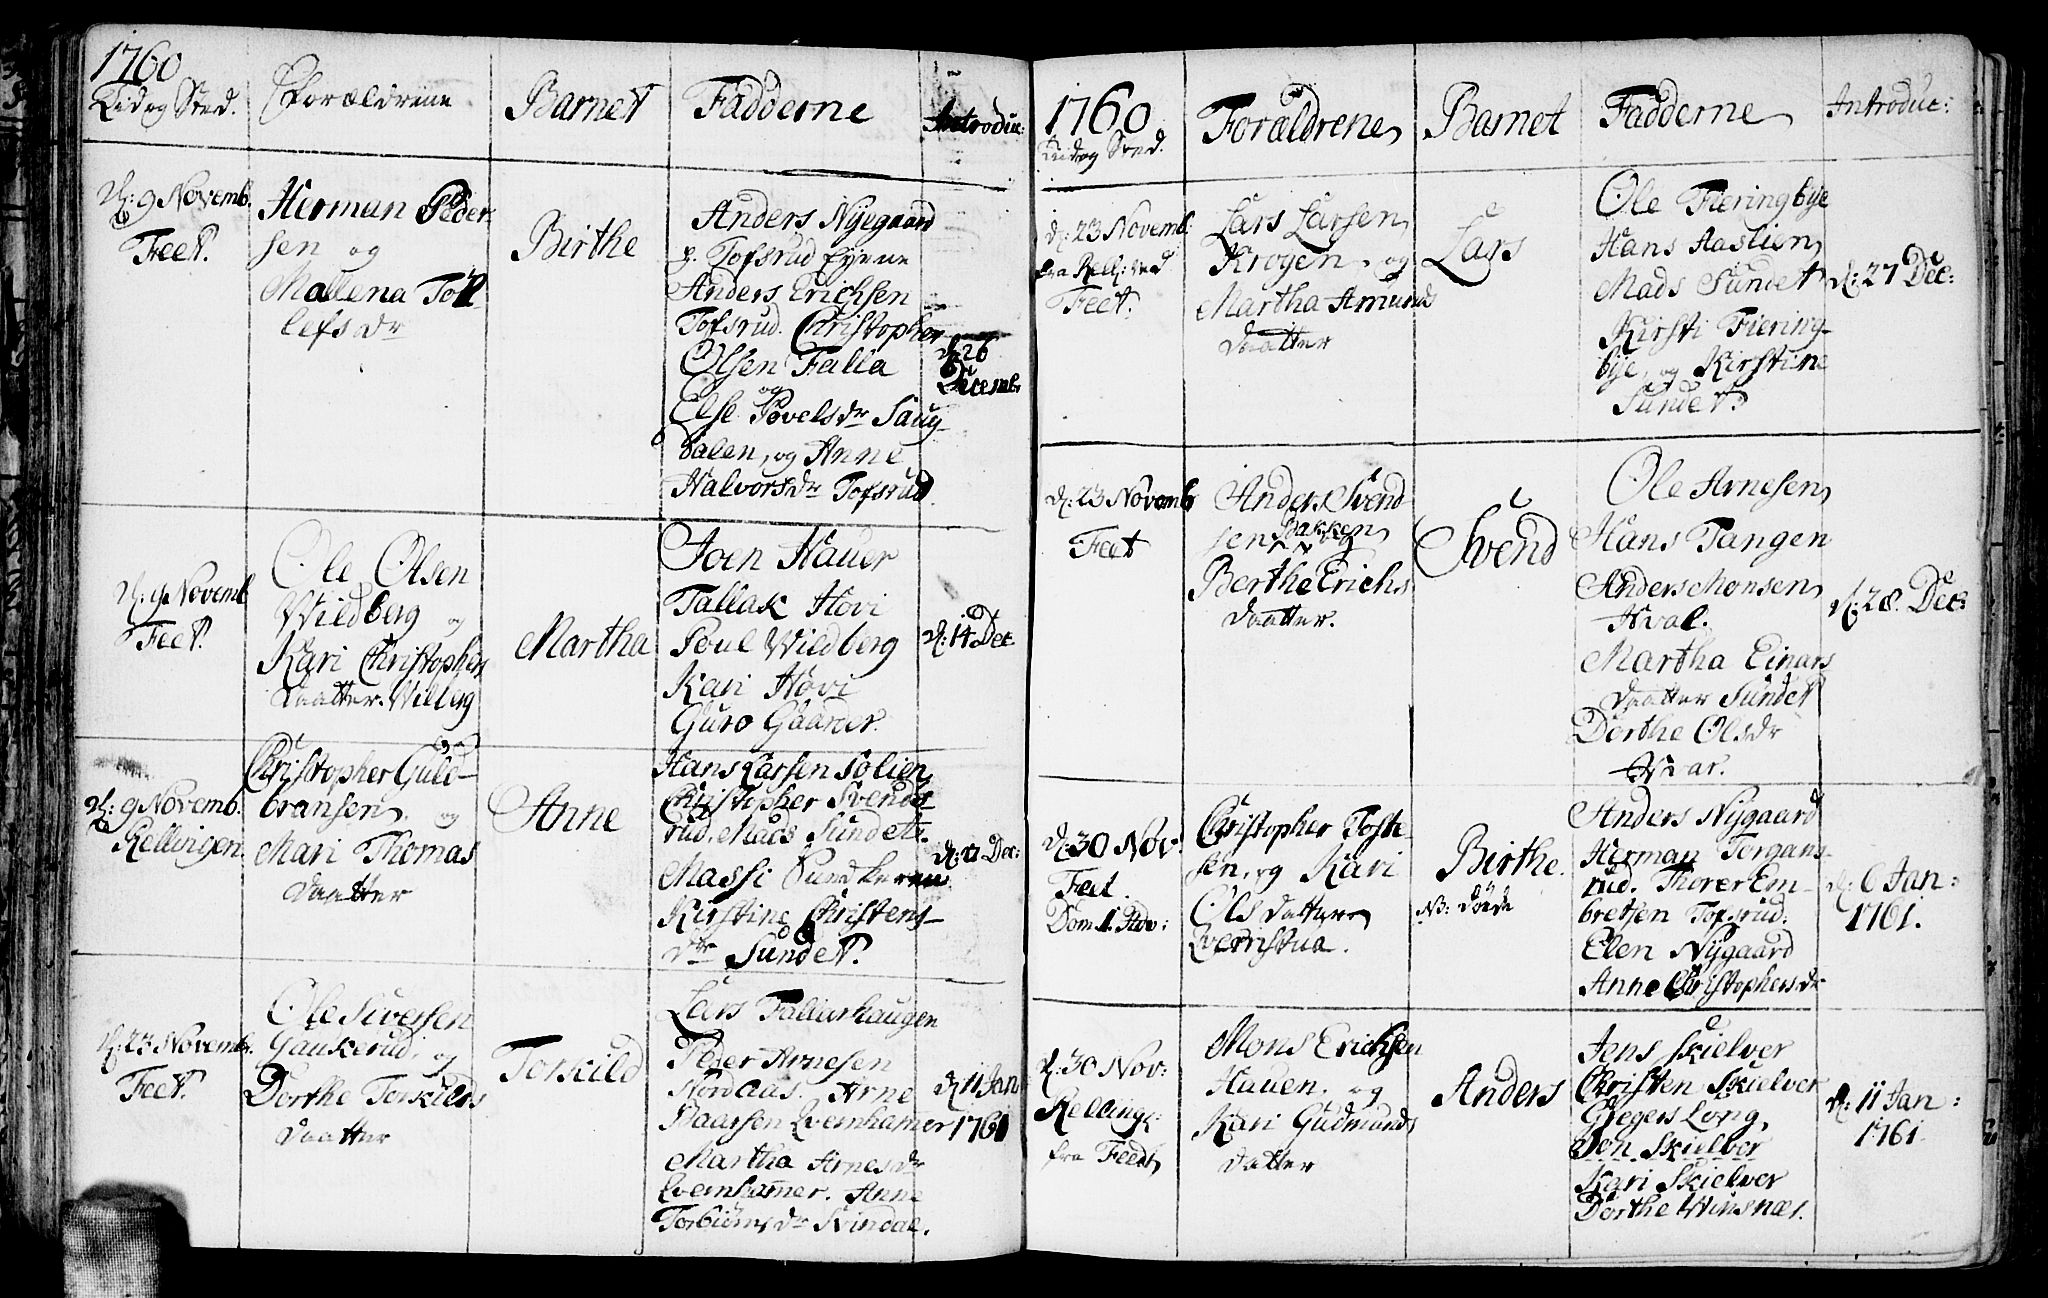 1760
Tid og Sted.
Forældrene
Barnet
Fadderne
Introduc:
d: 9 Novemb.
Feet.
Herman Peder
sen og
Mallena Toll
lefs dr
Birthe
Anders Nyegaard
p. Tofsrud Eyene
Anders Erichsen
Tofsrud. Christopher
Olsen Falla
og
Else Povels dr Saug
dalen, og Anne
Halvors dr Tofsrud
d: 26
Decemb:
d: 9 Novemb
Feet.
Ole Olsen
Wildberg og
Kari Christophers
Daatter. Wilberg
Martha
Joen Hauer
Tallak Hovi
Poul Wildberg
Kari Hovi
Guro Gaarder.
d: 14 Dec
d: 9 Novemb.
Rellingen
Christopher Guld-
bransen, og
Mari Thomas
Daatter
Anne
Hans Larsen Solien
Christopher Svends
rud. Mads Sundet.
Massi Sundkeren
Kirstine Christens-
dr Sundet.
d: 21 Dec:
d: 23 Novemb.
Feet.
Ole Siversen
Gaukerud, og
Dorthe Torkilds
Daatter
Torkild
Lars Fallershaugen
Peder Arnesen
Nordaas. Arne
Haarsen Qvernhamer
Martha Arnes dr
Qvernhamer. Anne
Torbiørns dr Svindal.
d: 11 Jan
1761
1760
Tid og Sted.
Forældrene
Barnet
Fadderne
Introduc:
d: 23 Novemb:
fra Rell: ved
Feet.
Lars Larsen
Kroyen, og
Martha Amunds
Daatter
Lars
Ole Fieringbye
Hans Aaslien
Mads Sundet
Kirsti Fiering-
bye, og Kirstine
Sundet.
d: 27 Dec:
d: 23 Novemb
Feet
Anders Svend
sen Bakken
og
Berthe Erichs
Daatter.
Svend
Ole Arnesen
Hans Tangen
Anders Monsen
Hval.
Martha Einars
Daatter Sundet
Dorthe Ols dr
Hvar.
d: 28. Dec:
d: 30 Nov:
Feet.
Dom 1. Adv:
Christopher Toste-
sen, og Kari
Ols Datter
Qvernstua.
Birthe.
NB: døde
Anders Nygaard
Herman Torgans-
rud. Thorer Em-
bretsen Tofsrud.
Elen Nygaard
Anne Christophers dr
d: 6 Jan:
1761.
d: 30 Nov:
Relling:
fra Feedt
Mons Erichsen
Hauen, og
Kari Gudmunds
Datter
Anders
Jens Skielver
Christen Skielver
Gregers Long,
Jon Skielver
Kari Skielver
Dorthe Winsnæs.
d: 11 Jan:
1761